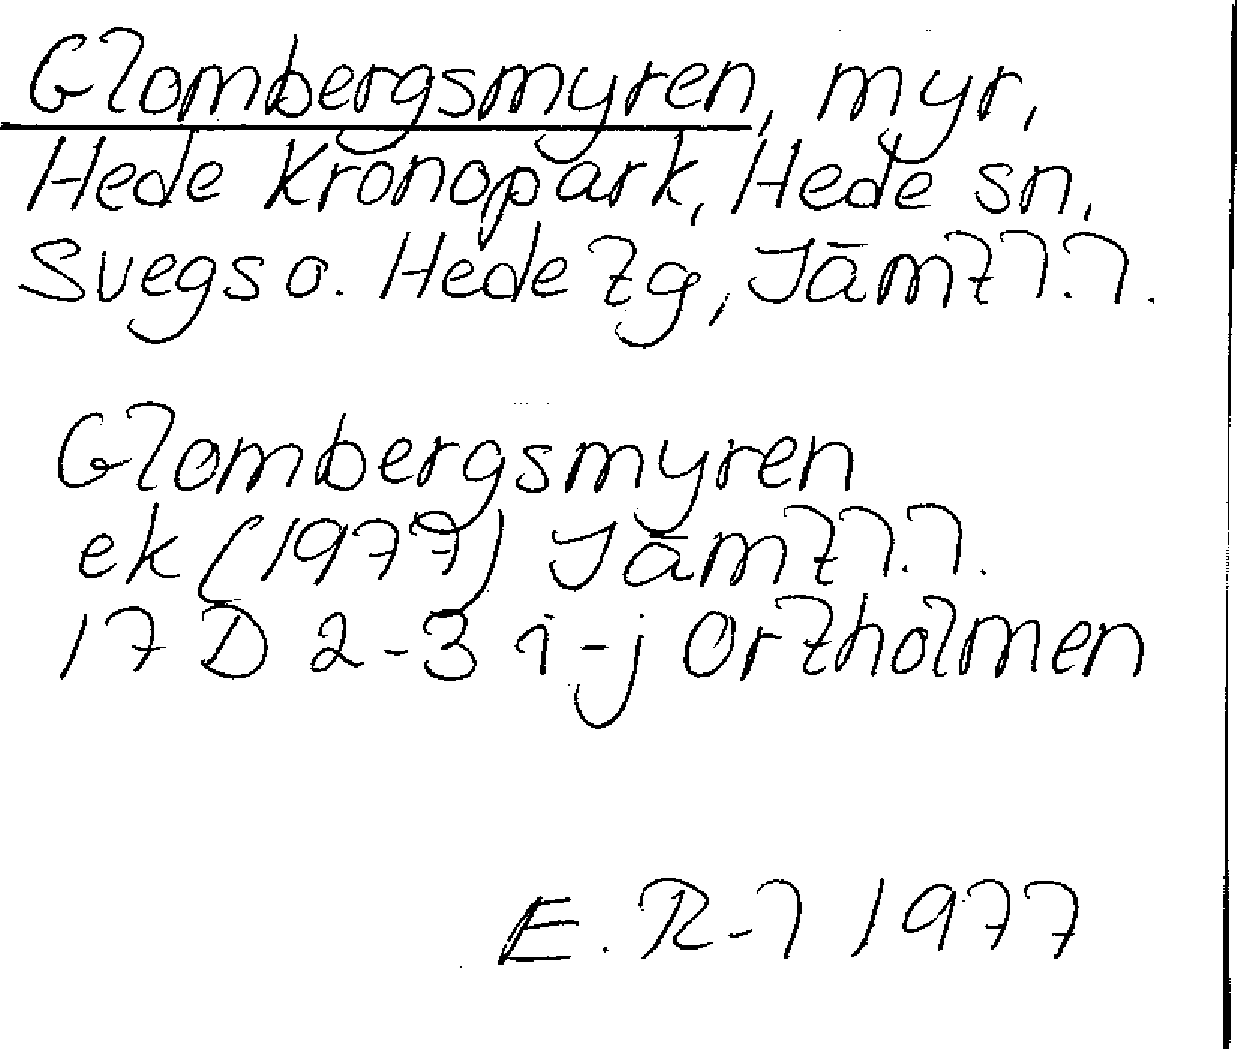 Glombergsmyren, myr,
Hede Kronopark, Hede sn,
Svegs o. Hede tg, Jämtl. l.
Glombergsmyren
ek (1977) Jämtl. l.
17 D 2-3 i-j Ortholmen
E. R-l 1977